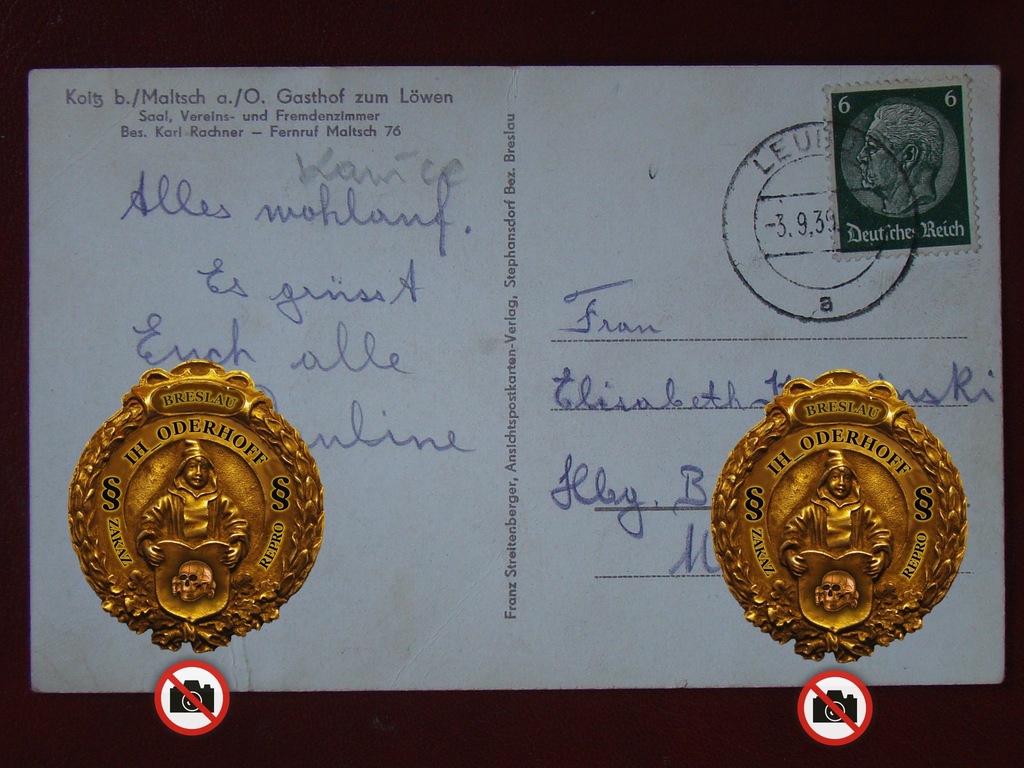 Koitz b./Maltsch a./O. Gasthof zum Löwen
Saal, Vereins- und Fremdenzimmer
Bes. Karl Rachner – Fernruf Maltsch 76
Alles wohlauf.
Es grüsst
Euch alle
Franz Streitenberger, Ansichtspostkarten-Verlag, Stephansdorf Bez. Breslau
6 6
Deutsches Reich
LEU
-3.9.39
a
Frau
Elisabeth
Hbg. B
M
BRESLAU
IH ODERHOFF
§ §
ZAKAZ REPRO
BRESLAU
IH ODERHOFF
§ §
ZAKAZ REPRO